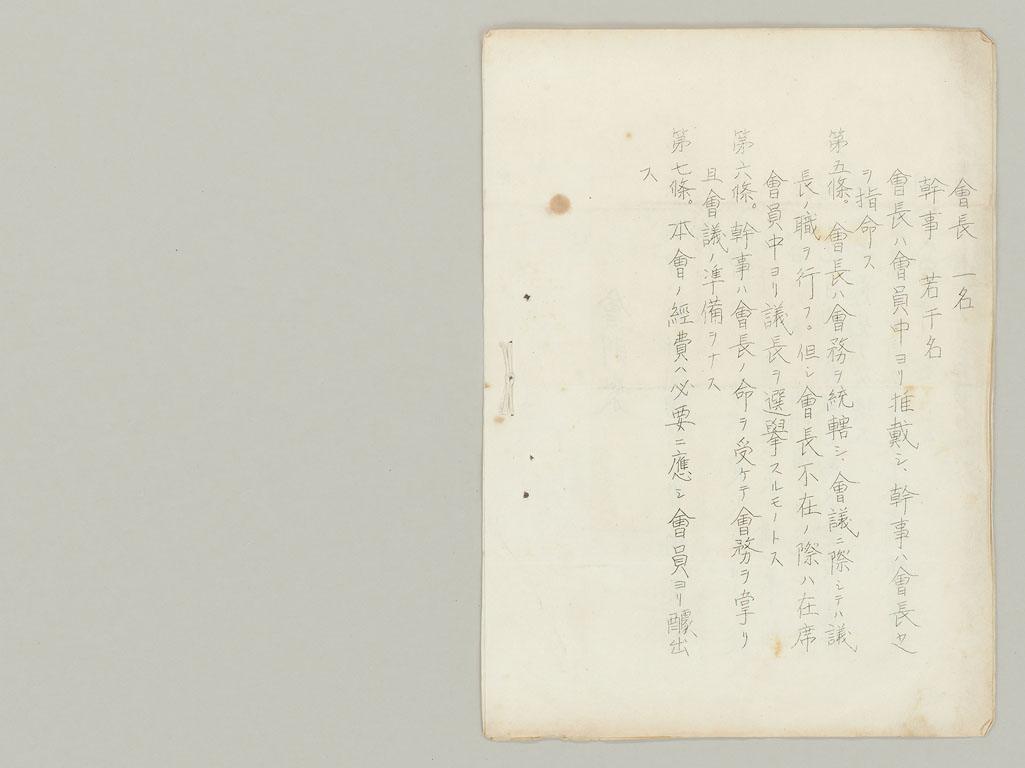 會長 一名
幹事 若干名
會長ハ會員中ヨリ推戴シ、幹事ハ會長之
ヲ指命ス
第五條。會長ハ會務ヲ統轄シ、會議ニ際シテハ議
長ノ職ヲ行フ。但シ會長不在ノ際ハ在席
會員中ヨリ議長ヲ選擧スルモノトス
第六條。幹事ハ會長ノ命ヲ受ケテ會務ヲ掌リ
且會議ノ準備ヲナス
第七條。本會ノ經費ハ必要ニ應シ會員ヨリ醵出
ス